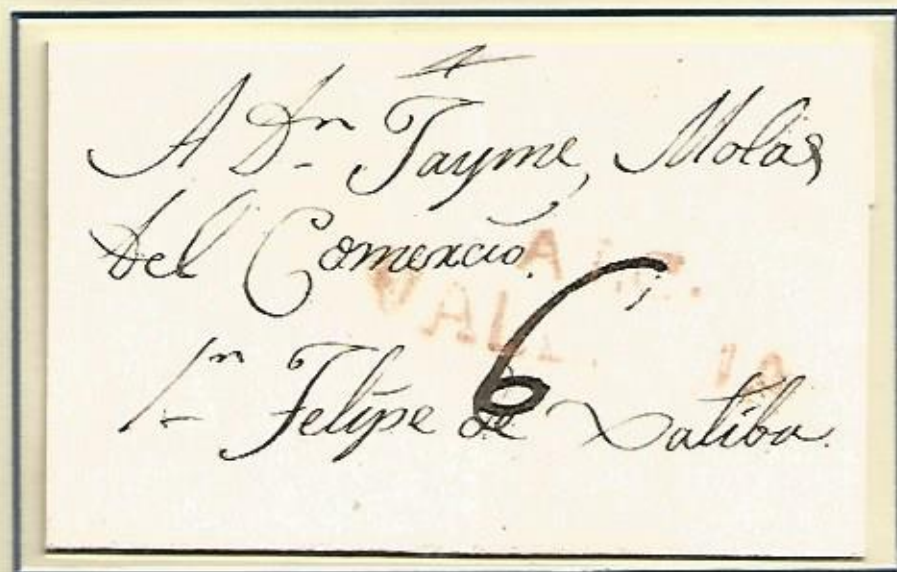 A Dn Jayme, Molas
Del Comercio.
6
Sn Felipe de Xatiba